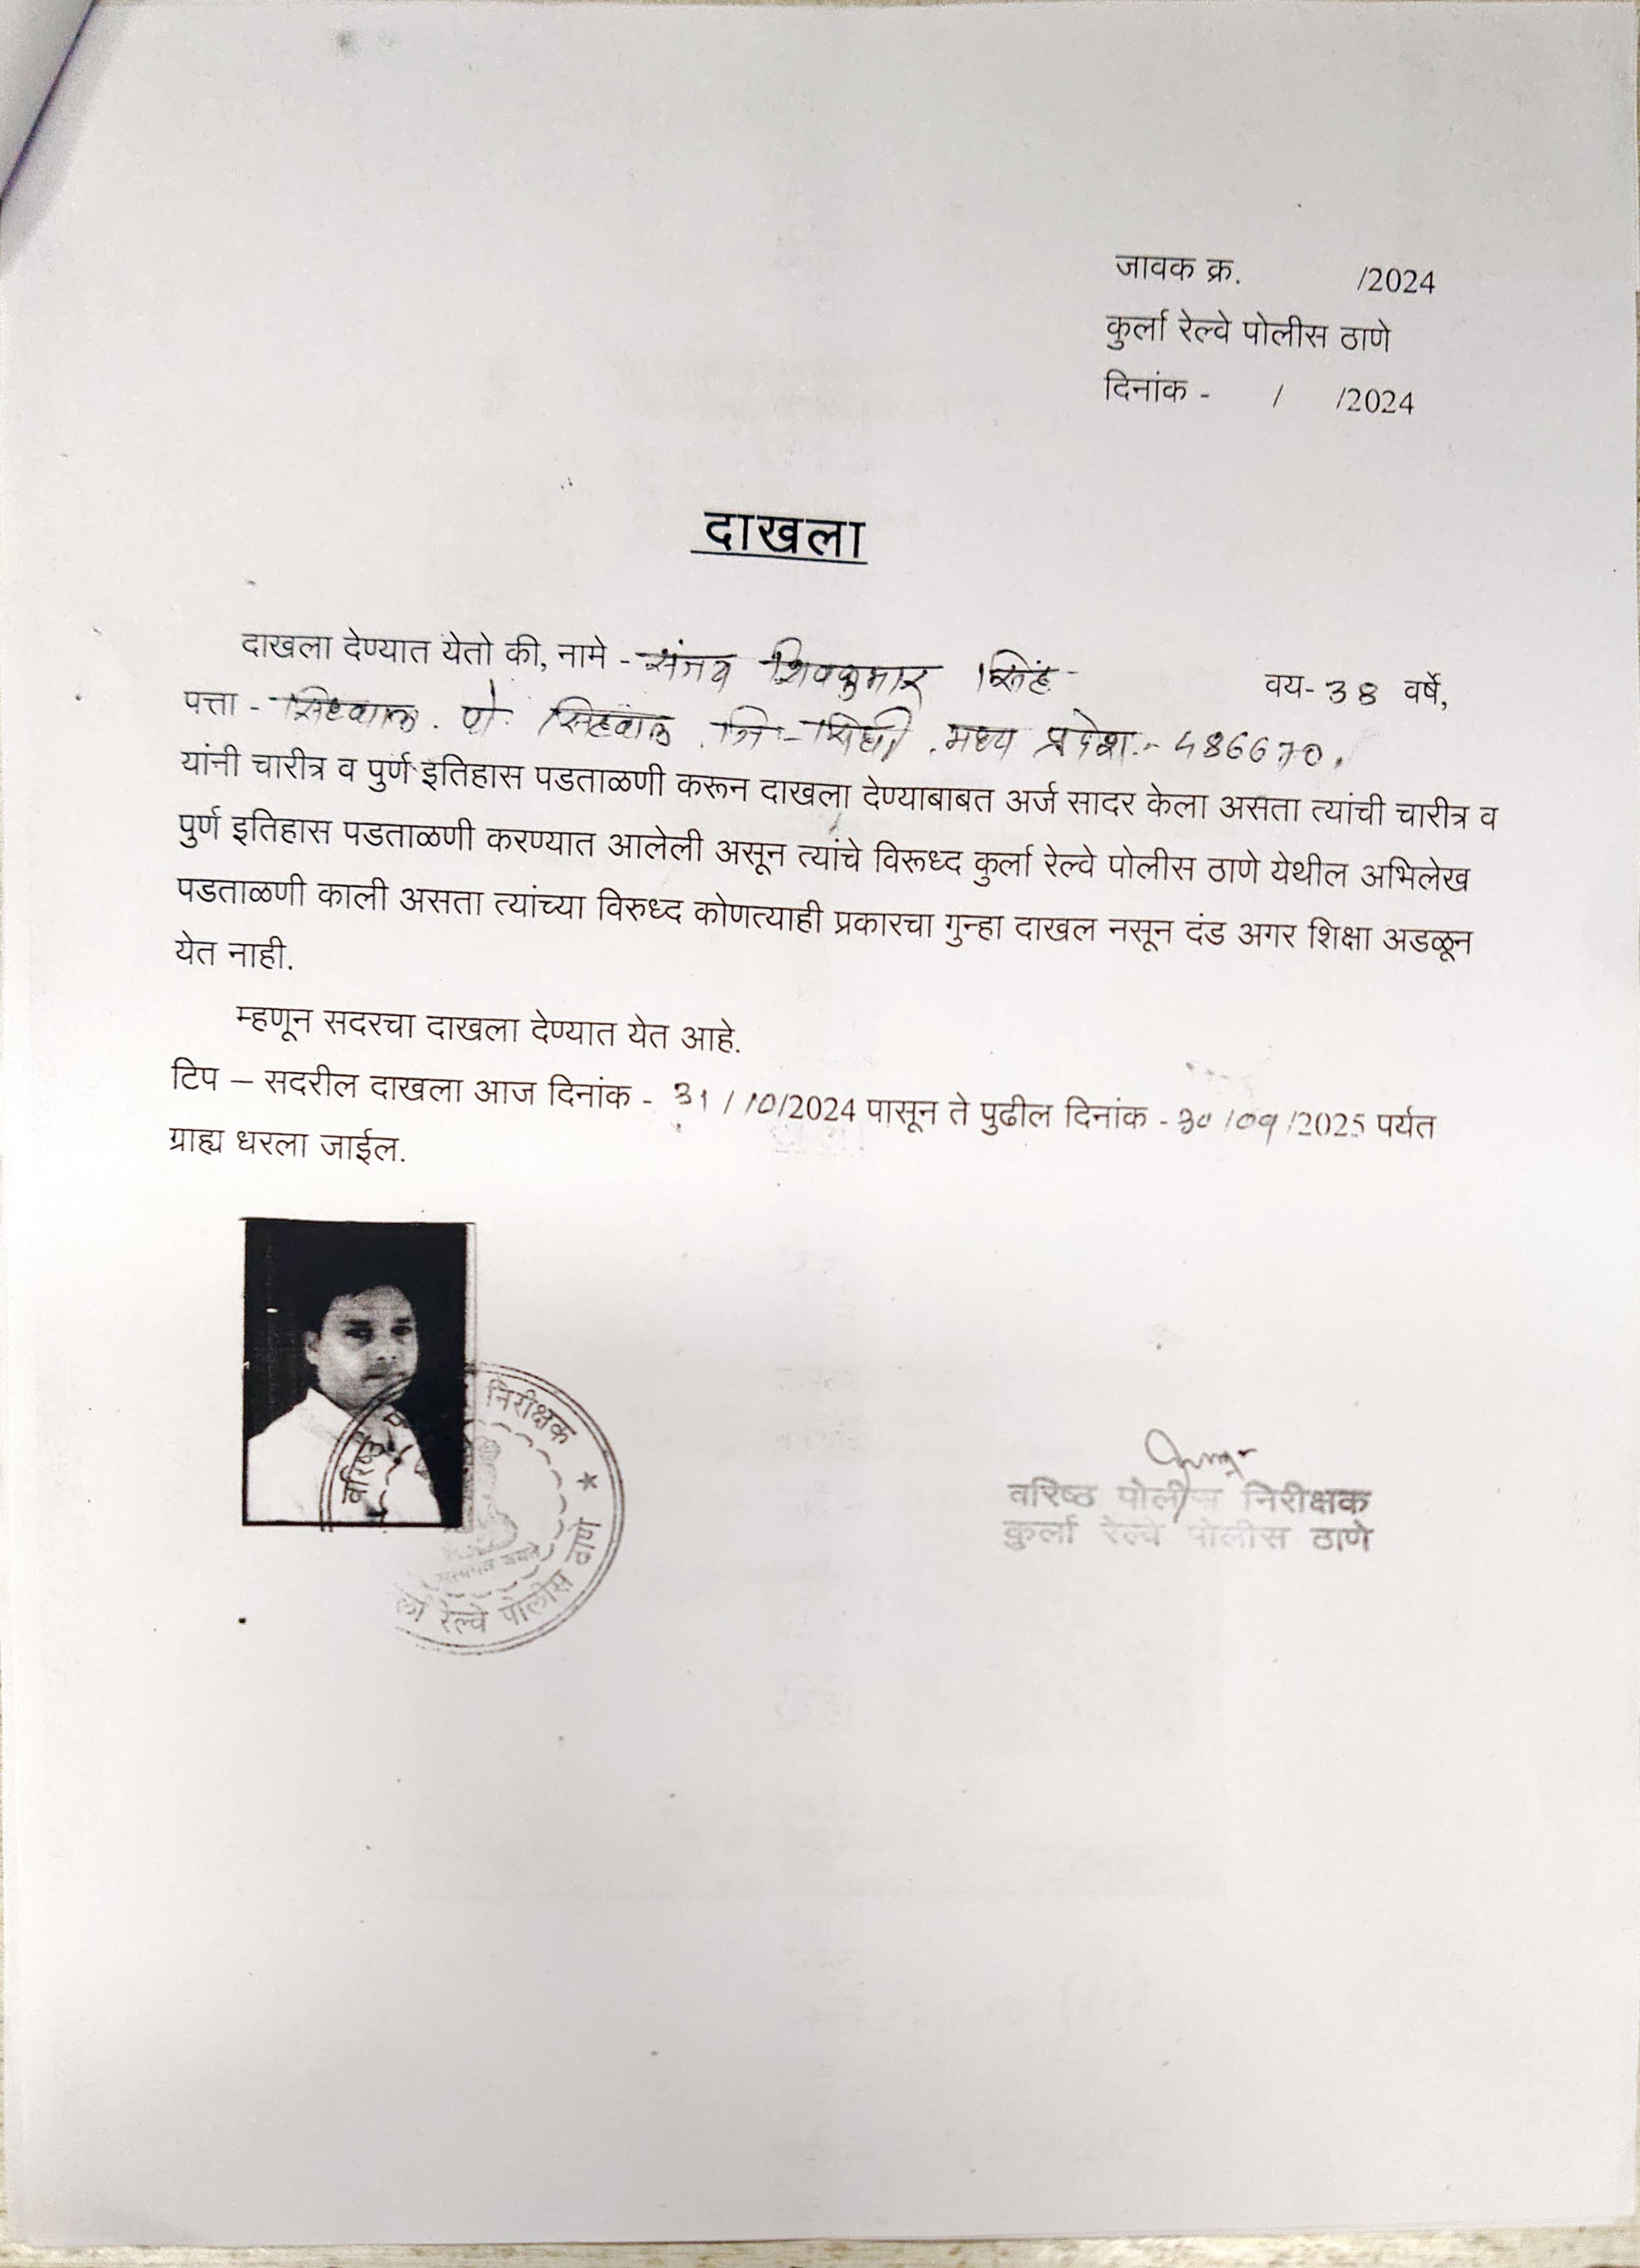 जावक क्र. /2024
कुर्ला रेल्वे पोलीस ठाणे
दिनांक - / /2024
दाखला
दाखला देण्यात येतो की, नामे - संजय शिवकुमार सिंह वय- 38 वर्षे,
पत्ता - सिहवाल. पो. सिहवाल. जि - सिधी. मध्य प्रदेश.- 486670.
यांनी चारीत्र व पुर्ण इतिहास पडताळणी करून दाखला देण्याबाबत अर्ज सादर केला असता त्यांची चारीत्र व
पुर्ण इतिहास पडताळणी करण्यात आलेली असून त्यांचे विरूध्द कुर्ला रेल्वे पोलीस ठाणे येथील अभिलेख
पडताळणी काली असता त्यांच्या विरुध्द कोणत्याही प्रकारचा गुन्हा दाखल नसून दंड अगर शिक्षा अडळून
येत नाही.
म्हणून सदरचा दाखला देण्यात येत आहे.
टिप – सदरील दाखला आज दिनांक - 31/10/2024 पासून ते पुढील दिनांक - 30/09/2025 पर्यत
ग्राह्य धरला जाईल.
वरिष्ठ निरीक्षक
रेल्वे पोलीस ठाणे
सत्यमेव जयते
वरिष्ठ पोलीस निरीक्षक
कुर्ला रेल्वे पोलीस ठाणे